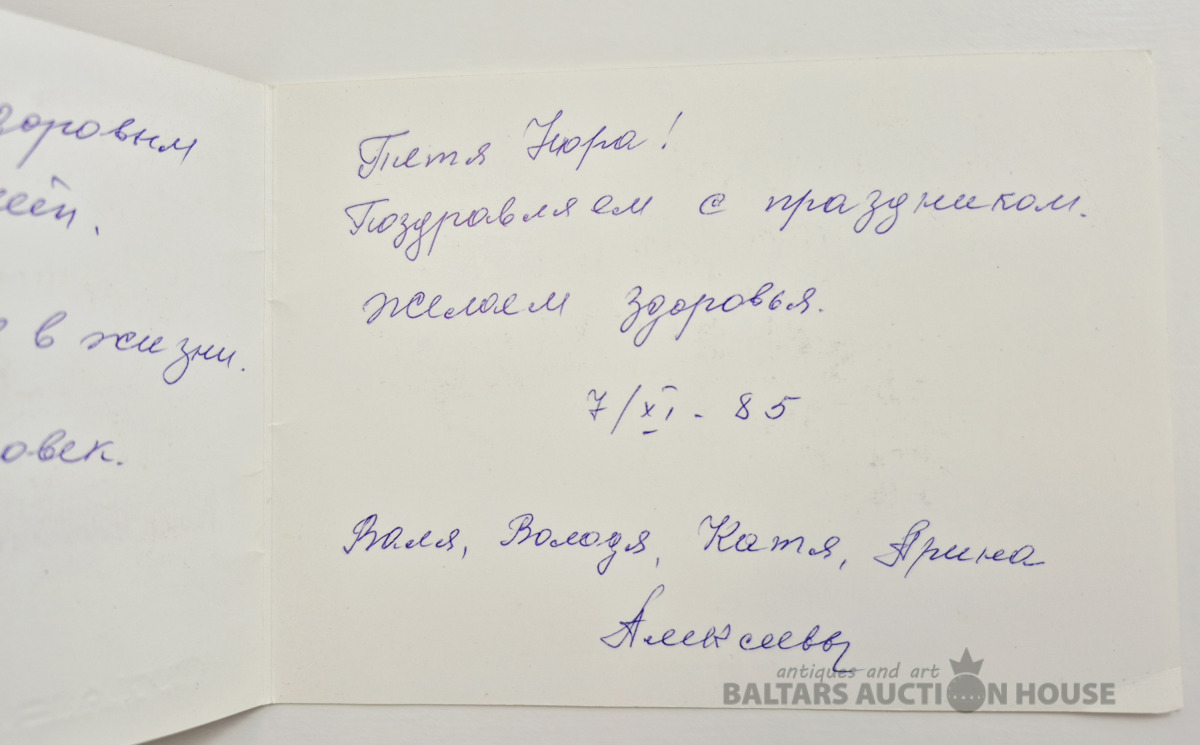 здоровым
в жизни.
овек.
Тетя Нюра!
Поздравляем с праздником.
желаем здоровья.
7/XI - 85
Валя, Володя, Катя, Арина
Алексеевы
antiques and art
BALTARS AUCTION HOUSE